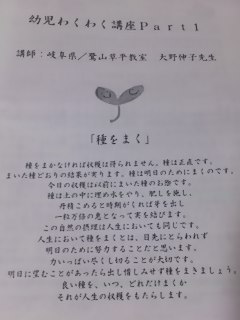 幼児わくわく講座Part1
講師：岐阜県／鷺山草平教室　大野伸子先生
「種をまく」
種をまかなければ収穫は得られません。種は正直です。
まいた種どおりの結果が実ります。種は明日のためにまくのです。
今日の収穫は以前にまいた種のお陰です。
種は土の中に埋め水をやり、肥しを施し、
丹精こめると時期がくれば芽を出し
一粒万倍の恵となって実を結びます。
この自然の摂理は人生においても同じです。
人生において種をまくとは、目先にとらわれず
明日のために努力することだと思います。
力いっぱい尽くし切ることが大切です。
明日に望むことがあったら出し惜しみせず種をまきましょう。
良い種を、いつ、どれだけまくか
それが人生の収穫をもたらします。